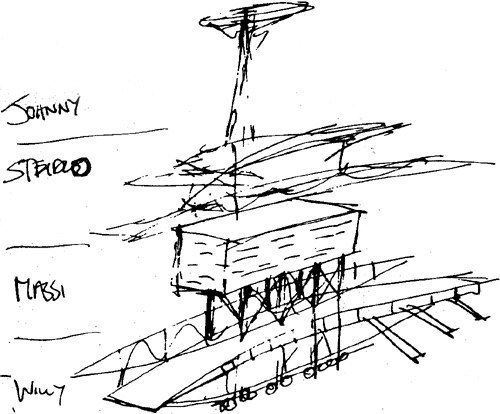 JOHNNY
STEFANO
MASSI
WILLY